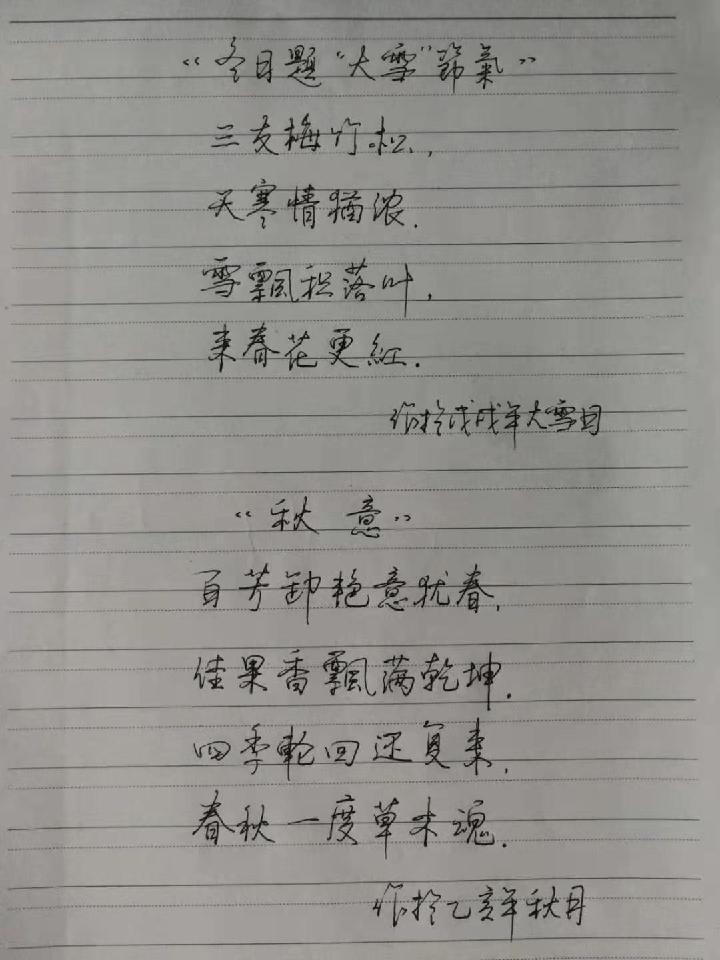 《冬日题“大雪”節氣》
三友梅竹松,
天寒情猶浓.
雪飄积落叶,
来春花更紅.
作於戊戌年大雪日
“秋 意”
百芳卸艳意犹春,
佳果香飄满乾坤.
四季轮回还复来,
春秋一度草木魂.
作於乙亥年秋月